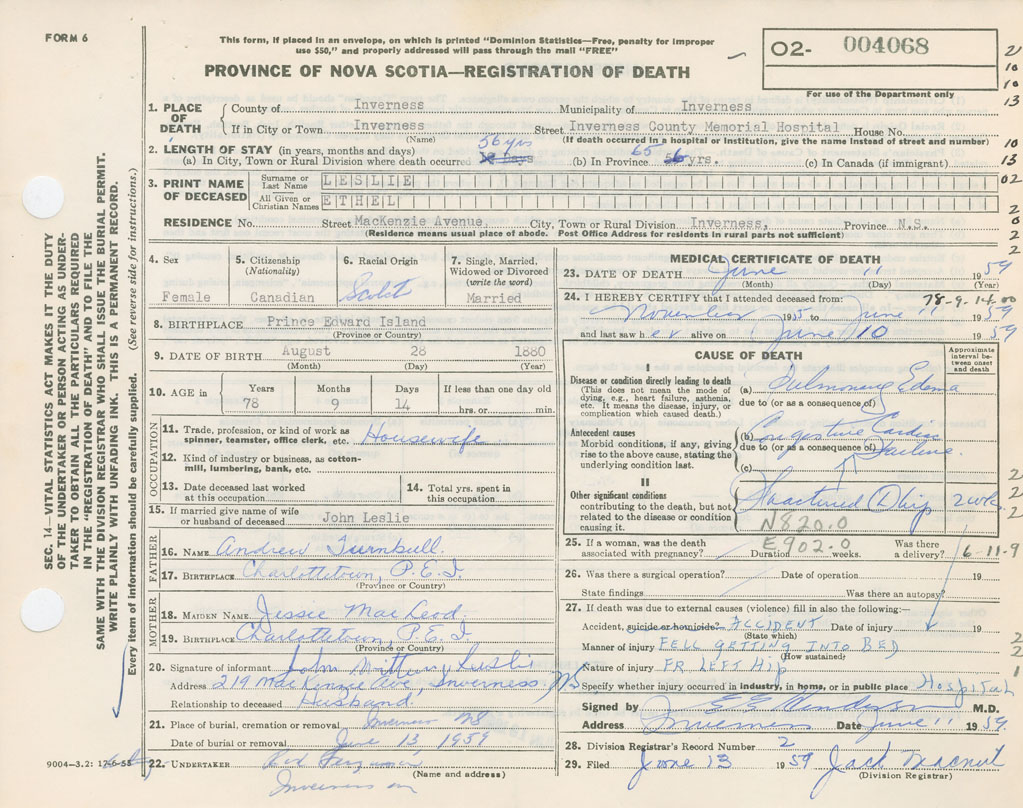 FORM 6
This form, if placed in an envelope, on which is printed "Dominion Statistics—Free, penalty for improper
use $50," and properly addressed will pass through the mail "FREE"
02- 004068
For use of the Department only
PROVINCE OF NOVA SCOTIA—REGISTRATION OF DEATH
1. PLACE OF DEATH
County of Inverness Municipality of Inverness
If in City or Town Inverness Street Inverness County Memorial Hospital House No.
(Name) (If death occurred in a hospital or Institution, give the name instead of street and number)
2. LENGTH OF STAY (in years, months and days) 56 yrs 65
(a) In City, Town or Rural Division where death occurred (b) In Province yrs. (c) In Canada (if immigrant)
3. PRINT NAME OF DECEASED
Surname or Last Name LESLIE
All Given or Christian Names ETHEL
RESIDENCE No. Street MacKenzie Avenue, City, Town or Rural Division Inverness, Province N.S.
(Residence means usual place of abode. Post Office Address for residents in rural parts not sufficient)
4. Sex
Female
5. Citizenship
(Nationality)
Canadian
6. Racial Origin
Scotch
7. Single, Married, Widowed or Divorced
(write the word)
Married
8. BIRTHPLACE Prince Edward Island
(Province or Country)
9. DATE OF BIRTH August 28 1880
(Month) (Day) (Year)
10. AGE in Years Months Days If less than one day old
78 9 14 hrs. or min.
OCCUPATION
11. Trade, profession, or kind of work as
spinner, teamster, office clerk, etc. Housewife
12. Kind of industry or business, as cotton-
mill, lumbering, bank, etc.
13. Date deceased last worked
at this occupation
14. Total yrs. spent in
this occupation
15. If married give name of wife
or husband of deceased John Leslie
FATHER
16. NAME Andrew Turnbull.
17. BIRTHPLACE Charlottetown, P.E.I.
(Province or Country)
MOTHER
18. MAIDEN NAME Jessie MacLeod.
19. BIRTHPLACE Charlottetown, P.E.I
(Province or Country)
20. Signature of informant John Leslie
Address 219 MacKenzie Ave, Inverness. NS
Relationship to deceased Husband
21. Place of burial, cremation or removal Inverness NS
Date of burial or removal June 13 1959
22. UNDERTAKER
(Name and address)
Inverness
9004-3.2: 17-6-55
MEDICAL CERTIFICATE OF DEATH
23. DATE OF DEATH June 11 1959
(Month) (Day) (Year)
78-9-14.00
24. I HEREBY CERTIFY that I attended deceased from:
November 195 to June 11 1959
and last saw her alive on June 10 1959
CAUSE OF DEATH
Approximate interval between onset and death
I
Disease or condition directly leading to death
(This does not mean the mode of
dying, e.g., heart failure, asthenia,
etc. It means the disease, injury, or
complication which caused death.)
(a) Pulmonary Edema
due to (or as a consequence of)
Antecedent causes
Morbid conditions, if any, giving
rise to the above cause, stating the
underlying condition last.
(b) Congestive Cardiac
due to (or as a consequence of) Failure.
(c)
II
Other significant conditions
contributing to the death, but not
related to the disease or condition
causing it.
Fractured (L) hip 2 wks.
N820.0
E902.0
25. If a woman, was the death
associated with pregnancy? Duration weeks. Was there
a delivery? 6-11-9
26. Was there a surgical operation? Date of operation 19
State findings Was there an autopsy?
27. If death was due to external causes (violence) fill in also the following:—
Accident, suicide or homicide? ACCIDENT Date of injury 19
(State which)
Manner of injury FELL GETTING INTO BED
(How sustained)
Nature of injury FR LEFT HIP
Specify whether injury occurred in industry, in home, or in public place HOSPITAL
Signed by M.D.
Address Inverness Date June 11 1959.
28. Division Registrar's Record Number 2
29. Filed June 13 1959 Jack MacNeil
(Division Registrar)
SEC. 14—VITAL STATISTICS ACT MAKES IT THE DUTY
OF THE UNDERTAKER OR PERSON ACTING AS UNDER-
TAKER TO OBTAIN ALL THE PARTICULARS REQUIRED
IN THE "REGISTRATION OF DEATH" AND TO FILE THE
SAME WITH THE DIVISION REGISTRAR WHO SHALL ISSUE THE BURIAL PERMIT.
WRITE PLAINLY WITH UNFADING INK. THIS IS A PERMANENT RECORD.
Every item of information should be carefully supplied. (See reverse side for instructions.)
10
10
13
10
13
02
2
0
2
2
2
2
2
2
2
2
1